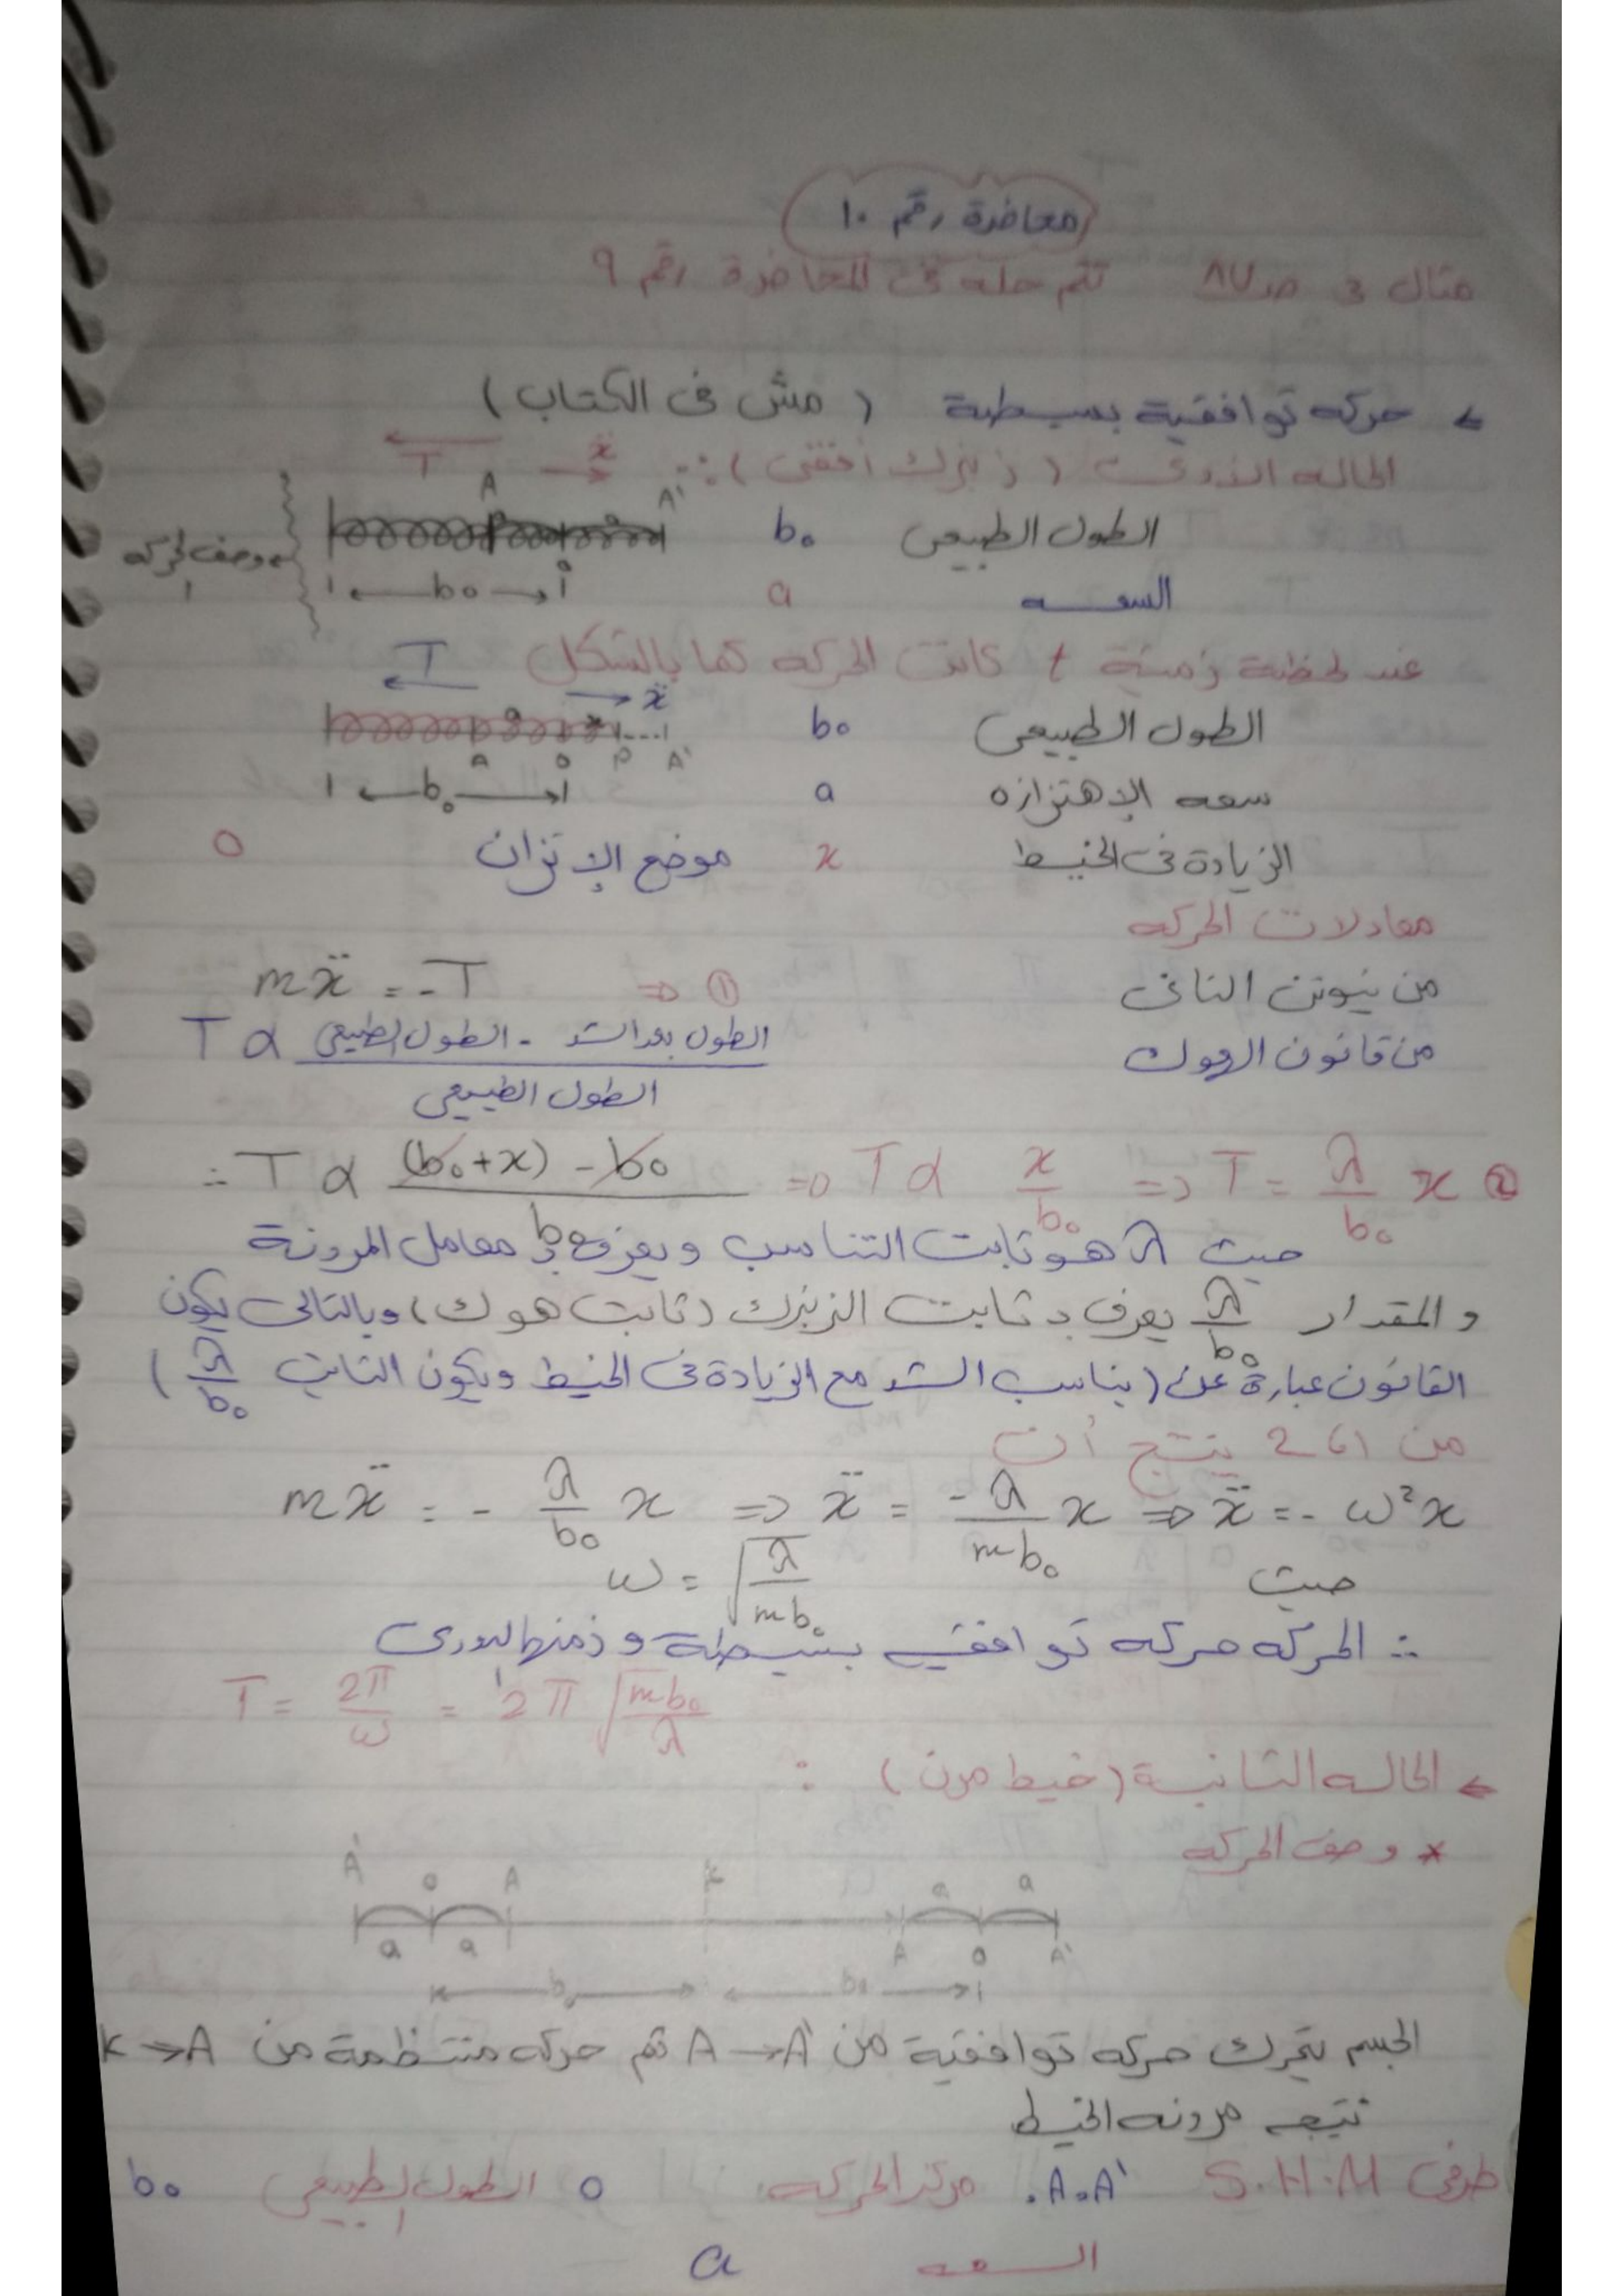 محاضرة رقم ١٠
مثال 3 صـ ٨٧ تم حله فى المحاضرة رقم ٩
← حركه توافقية بسيطة (مش فى الكتاب)
الحاله الاولى (زنبرك أفقى) ∴ ẍ T
A A'
الطول الطبيعى b₀
وصف الحركه
السعه a
b₀ o
عند لحظة زمنية t كانت الحركه كما بالشكل T
ẍ
الطول الطبيعى b₀
A O P A'
سعه الإهتزازه a
b₀
الزيادة فى الخيط x موضع الإتزان O
معادلات الحركه
من نيوتن الثانى mẍ = -T ⇒ ①
من قانون الهوك T α (الطول بعد الشد - الطول الطبيعى) / الطول الطبيعى
∴ T α ((b₀+x) - b₀) / b₀ ⇒ T α x/b₀ ⇒ T = λ/b₀ x ②
حيث λ هو ثابت التناسب ويعرف بـ معامل المرونة
والمقدار λ/b₀ يعرف بـ ثابت الزنبرك (ثابت هوك) وبالتالى يكون
القانون عبارة عن (يناسب الشد مع الزيادة فى الخيط ويكون الثابت λ/b₀)
من 1، 2 ينتج أن
mẍ = - λ/b₀ x ⇒ ẍ = -λ/mb₀ x ⇒ ẍ = - ω²x
حيث ω = √(λ/mb₀)
∴ الحركه حركه توافقيه بسيطة وزمنها الدورى
T = 2π/ω = 2π √(mb₀/λ)
← الحاله الثانية (خيط مرن) :
* وصف الحركه
A' O A k a a
a a A O A'
b₀ b₀
الجسم يتحرك حركه توافقية من A → A' ثم حركه منتظمة من K → A
نتيجه مرونه الخيط
طرفى S.H.M A، A'. مركز الحركه O الطول الطبيعى b₀
السعه a